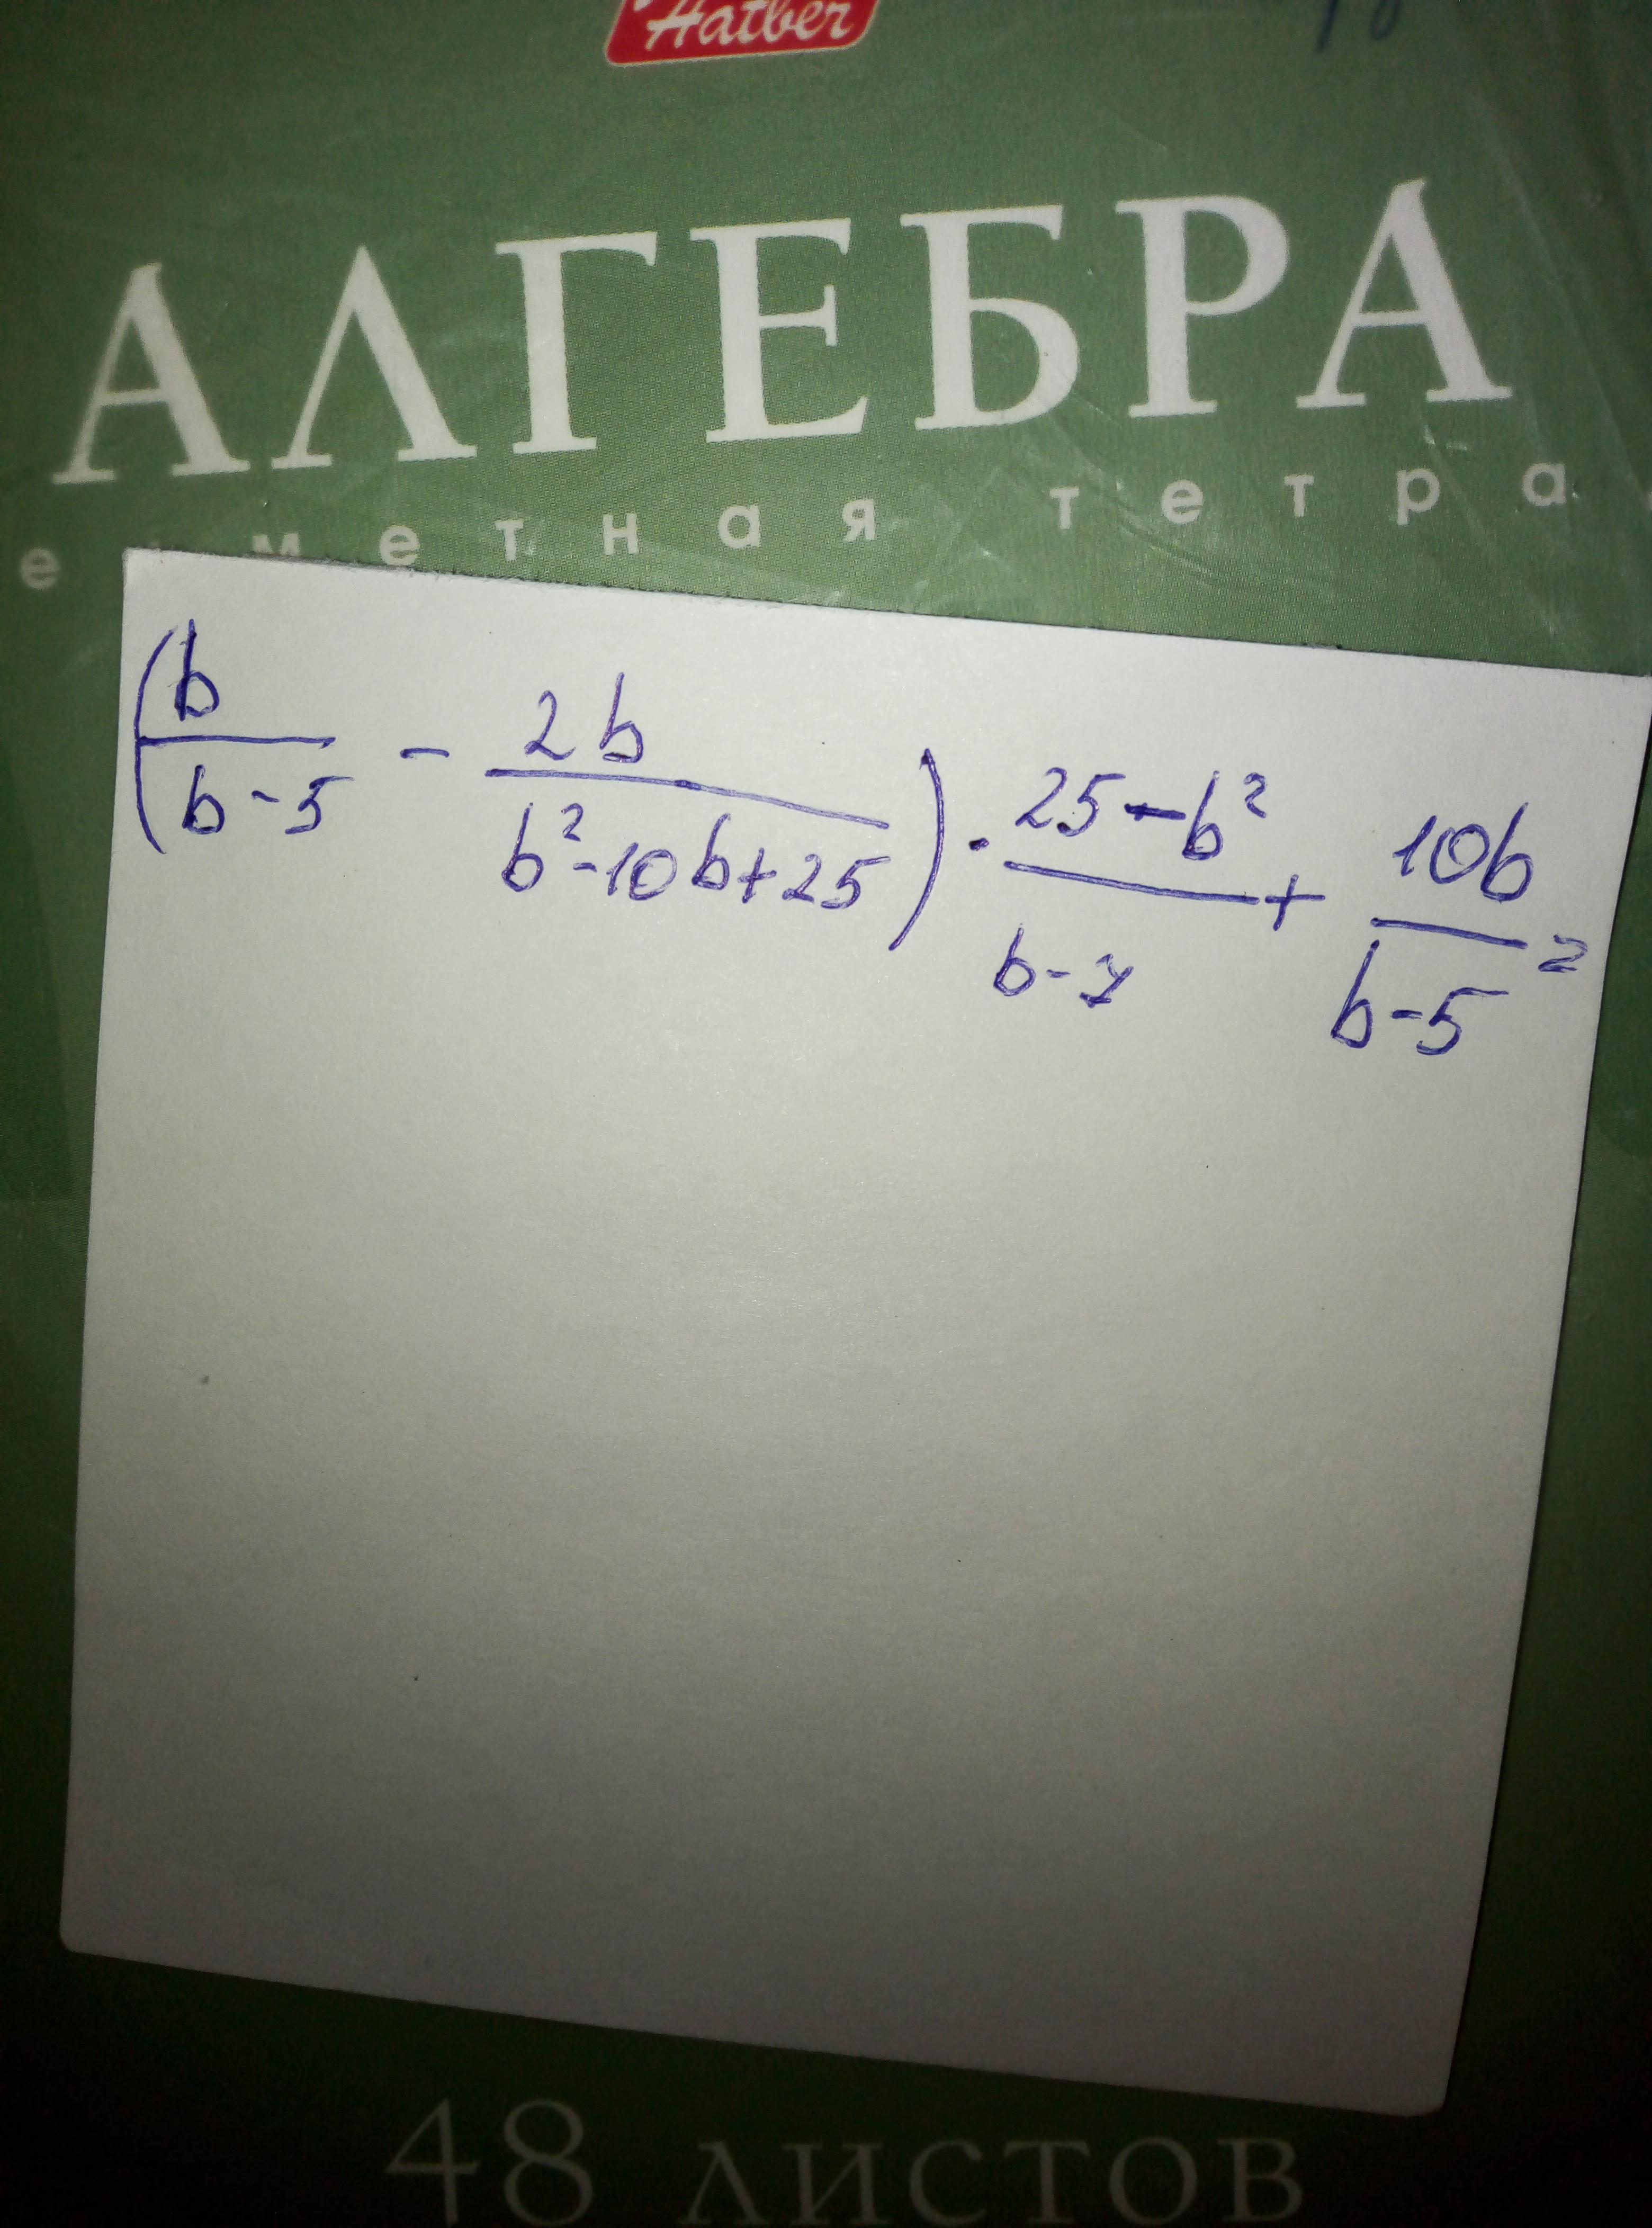 Hatber
АЛГЕБРА
метная тетра
(b/(b-5) - 2b/(b²-10b+25)) · (25-b²)/(b-7) + 10b/(b-5) =
48 ЛИСТОВ